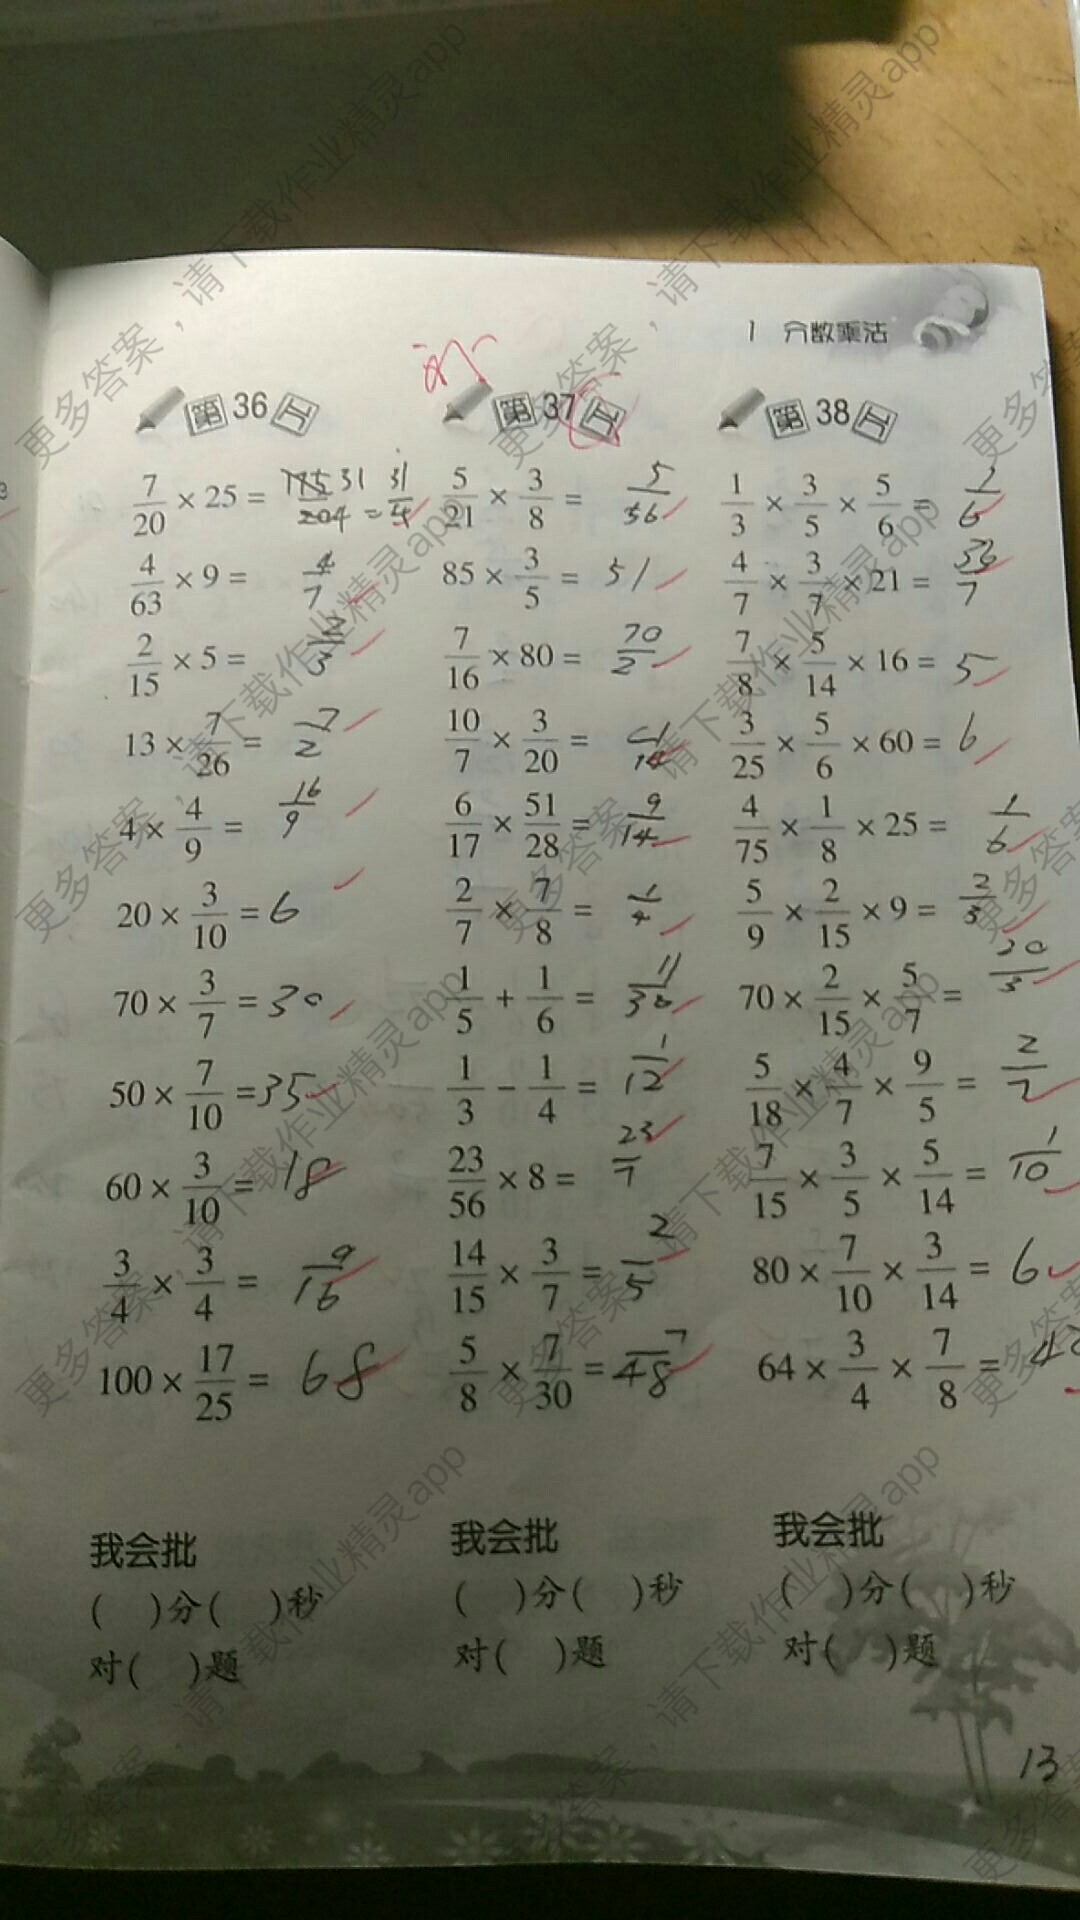 1 分数乘法
第36页
7/20 × 25 = 175/204 31 = 31/4
4/63 × 9 = 4/7
2/15 × 5 = 2/3
13 × 7/26 = 7/2
4 × 4/9 = 16/9
20 × 3/10 = 6
70 × 3/7 = 30
50 × 7/10 = 35
60 × 3/10 = 18
3/4 × 3/4 = 9/16
100 × 17/25 = 68
我会批
( )分( )秒
对( )题
第37页
5/21 × 3/8 = 5/56
85 × 3/5 = 51
7/16 × 80 = 70/2
10/7 × 3/20 =
6/17 × 51/28 = 9/14
2/7 × 7/8 = 1/4
1/5 + 1/6 = 11/30
1/3 − 1/4 = 1/12
23/56 × 8 = 23/7
14/15 × 3/7 = 2/5
5/8 × 7/30 = 7/48
我会批
( )分( )秒
对( )题
第38页
1/3 × 3/5 × 5/6 = 1/6
4/7 × 3/7 × 21 = 36/7
7/8 × 5/14 × 16 = 5
3/25 × 5/6 × 60 = 6
4/75 × 1/8 × 25 = 1/6
5/9 × 2/15 × 9 = 2/3
70 × 2/15 × 5/7 = 20/3
5/18 × 4/7 × 9/5 = 2/7
7/15 × 3/5 × 5/14 = 1/10
80 × 7/10 × 3/14 = 6
64 × 3/4 × 7/8 = 42
我会批
( )分( )秒
对( )题
13
更多答案，请下载作业精灵app